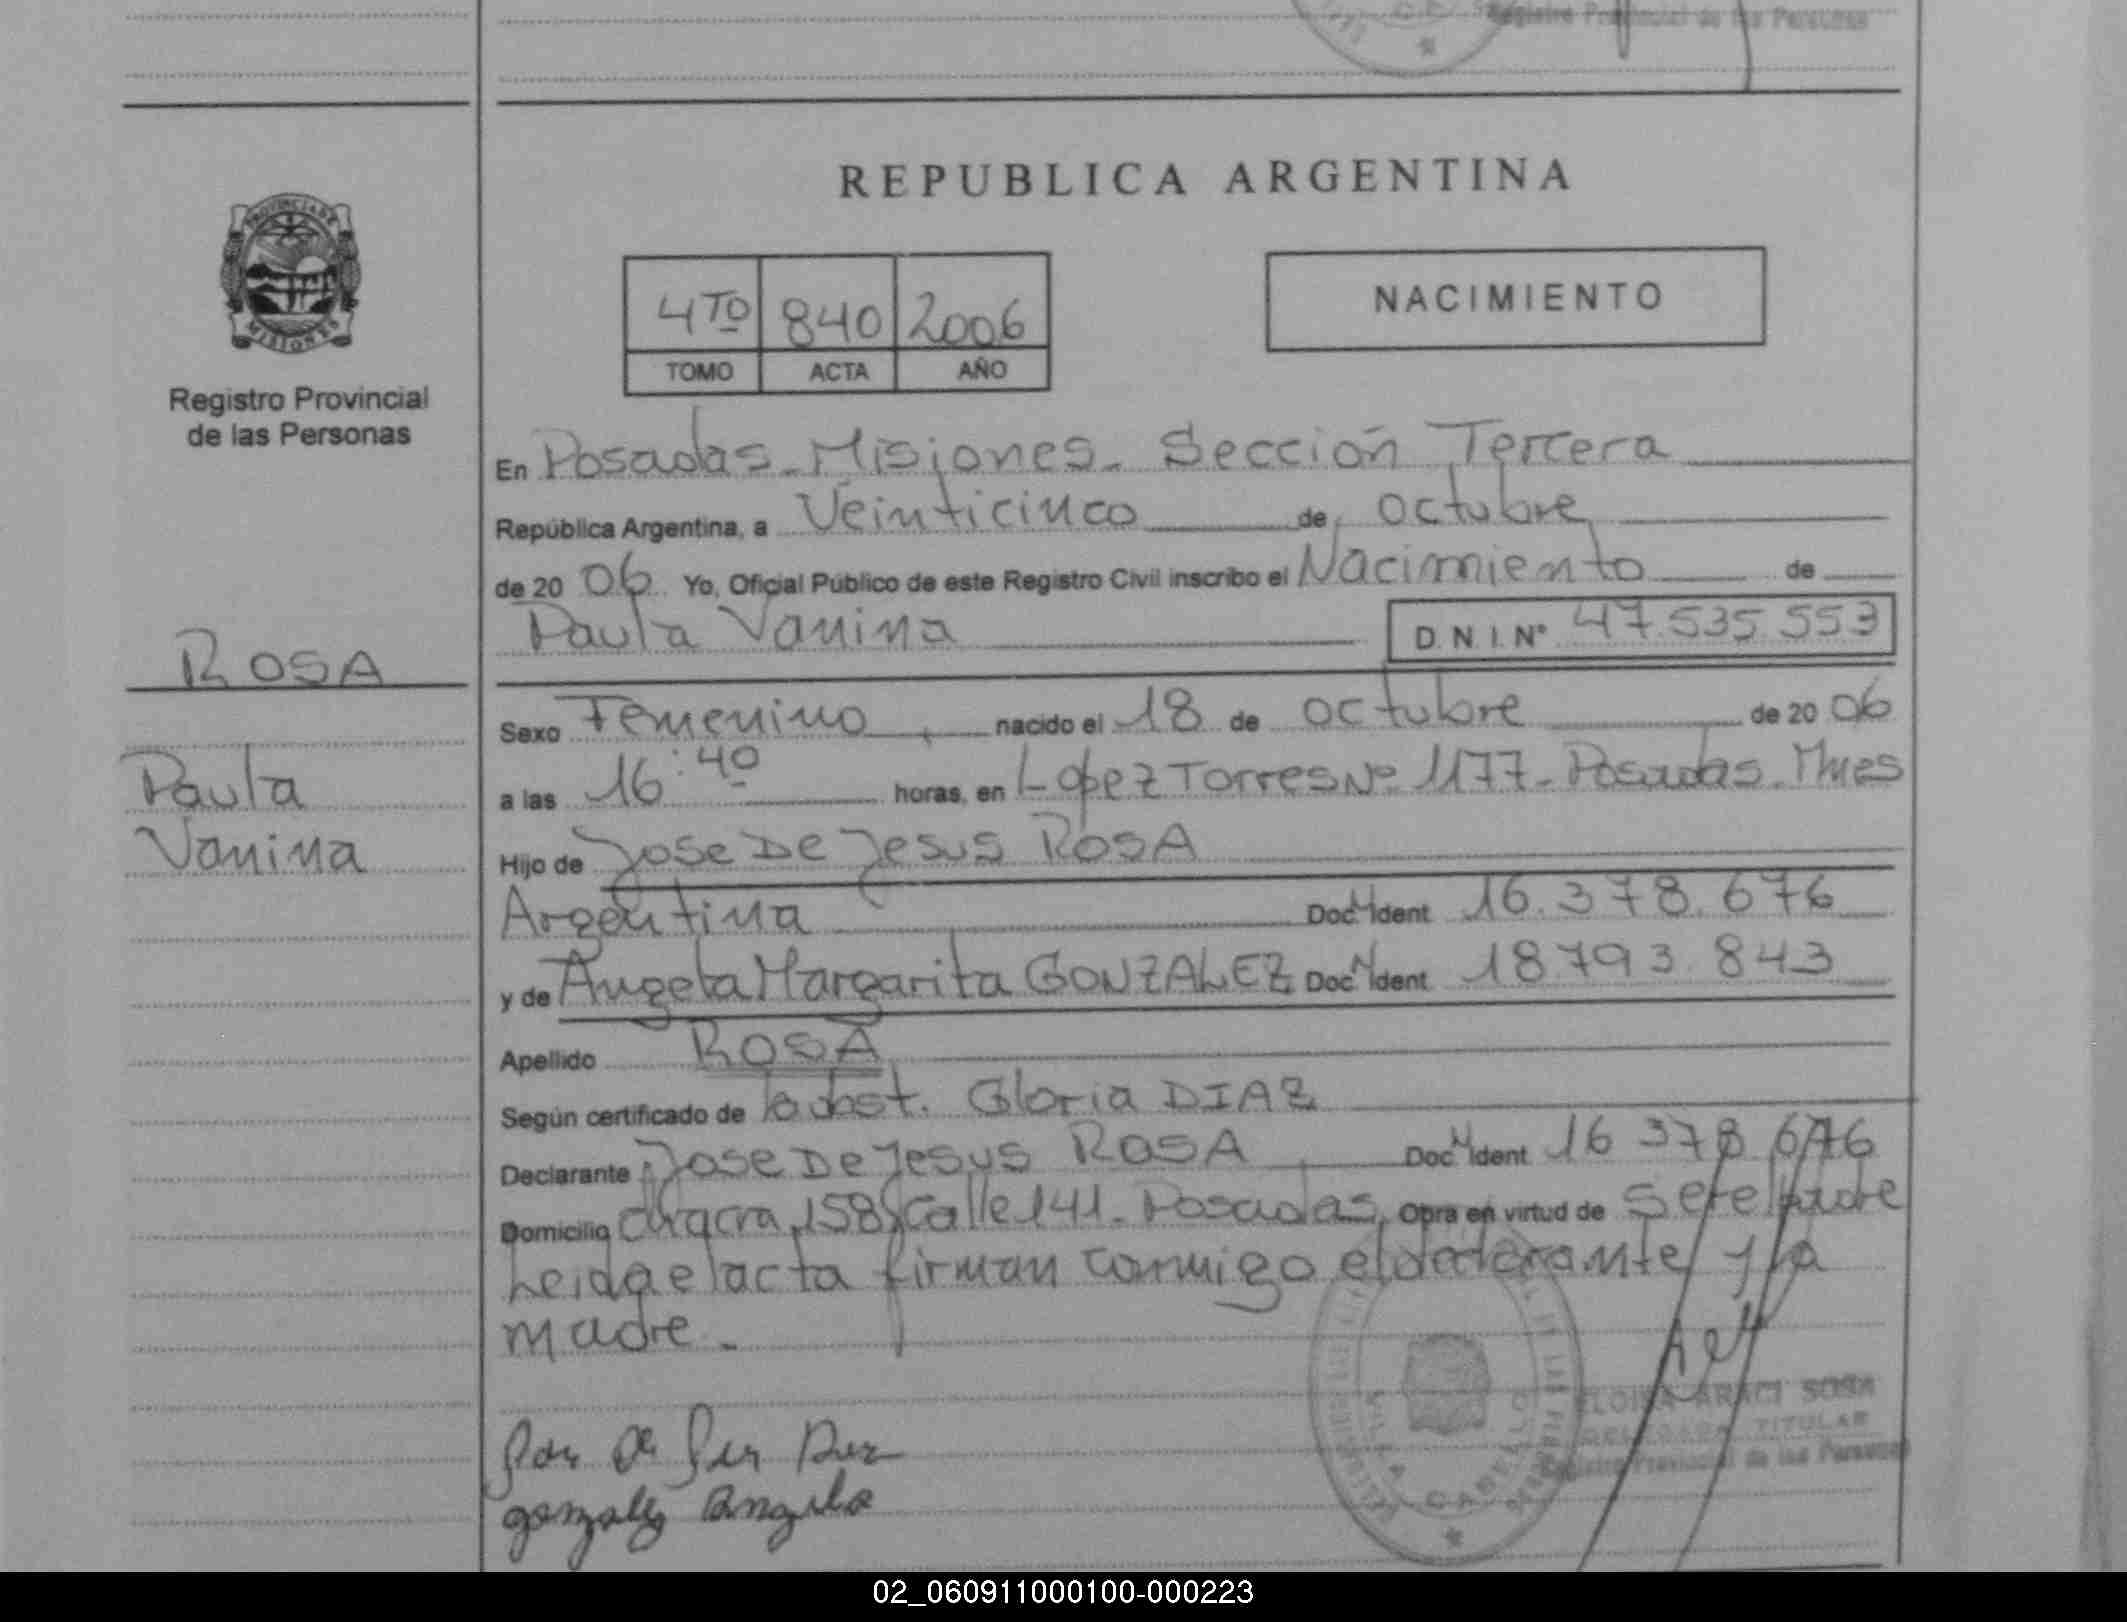 Registro Provincial de las Personas
REPUBLICA ARGENTINA
PROVINCIA DE
MISIONES
Registro Provincial
de las Personas
4TO 840 2006
TOMO ACTA AÑO
NACIMIENTO
En Posadas - Misiones - Sección Tercera
República Argentina, a Veinticinco de octubre
de 20 06 Yo, Oficial Público de este Registro Civil inscribo el Nacimiento de
Paula Vanina D.N.I. Nº 47.535.553
ROSA
Paula
Vanina
Sexo Femenino, nacido el 18 de octubre de 20 06
a las 16:40 horas, en Lopez Torres Nº 1177 - Posadas - Mnes
Hijo de Jose De Jesus ROSA
Argentina Doc. Ident 16.378.676
y de Angela Margarita GONZALEZ Doc. Ident 18.793.843
Apellido ROSA
Según certificado de la obst. Gloria DIAZ
Declarante Jose De Jesus ROSA, Doc. Ident 16 378 676
Domicilio chacra 158, Calle 141 - Posadas Obra en virtud de Ser el padre
Leida el acta firman conmigo el declarante y la
madre -
gonzalez angela
VILLA CABELLO
ELOISA ARACI SOSA
DELEGADA TITULAR
Registro Provincial de las Personas
02_060911000100-000223